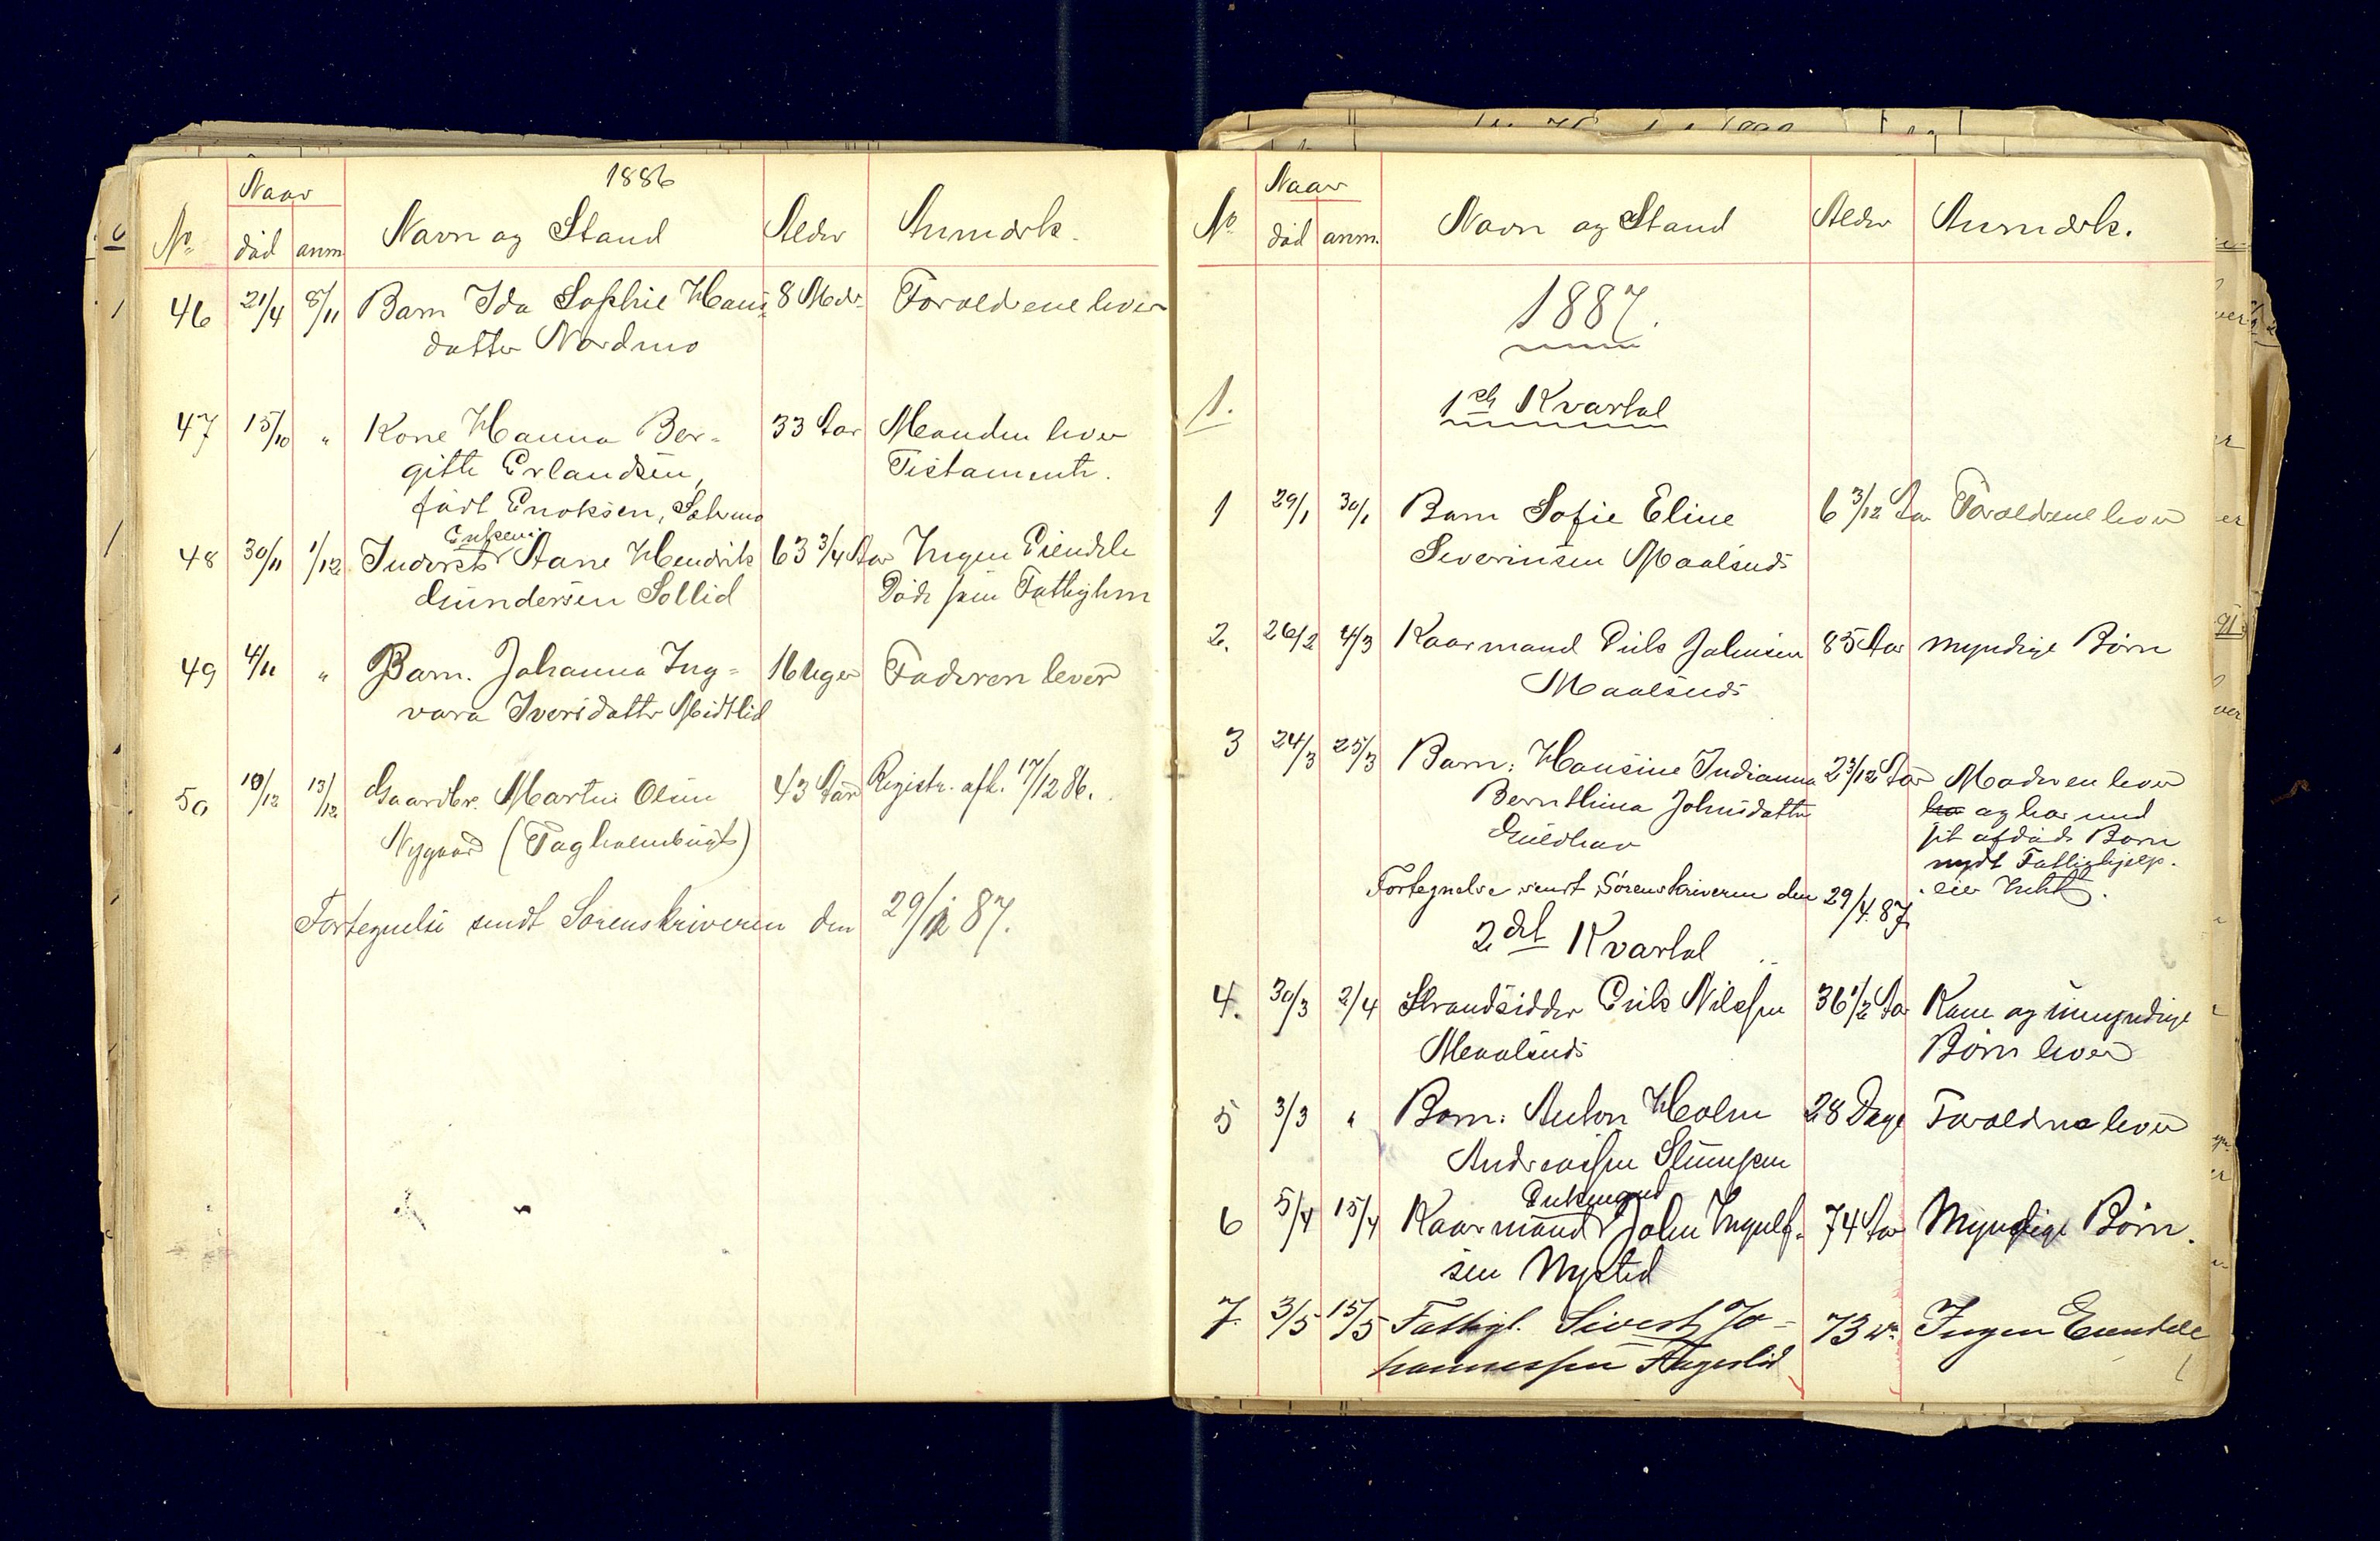 1886
Naar
No død anm. Navn og Stand Alder Anmærk.
46 21/4 8/11 Barn Ida Sophie Hans- 8 Mdr. Forældrene lever
datter Nordmo
47 15/10 " Kone Hanna Ber- 33 Aar Manden lever
gitte Erlandsen, Testamente.
født Enoksen,
Enkem.
48 30/11 1/12 Inderst Aane Hendrik 63 3/4 Aar Ingen Eiendele
Gundersen Sollid Døde som Fattiglem
49 4/11 " Barn. Johanna Ing- 16 Uger Faderen lever
vara Iversdatter Midtlid
50 10/12 13/12 Gaardbr. Martin Olsen 43 Aar Registr. afh. 17/12 86.
Nygaard (Tagholmbugt)
Fortegnelse sendt Sorenskriveren den 29/1 87.
Naar
No død anm. Navn og Stand Alder Anmærk.
1887.
1. 1ste Kvartal
1 29/1 30/1 Barn Sofie Eline 6 3/12 Aar Forældrene lever
Severinsen Maalsnes
2. 26/2 4/3 Kaarmand Erik Johnsen 85 Aar Myndige Børn
Maalsnes
3 24/3 25/3 Barn: Hansine Indianna 2 3/12 Aar Moderen lever
Bernthina Johnsdatter ha og har med
Guldhav sit afdøde Barn
nydt Fattighjælp.
Fortegnelse sendt Sorenskriveren den 29/4 87. eier Intet.
2det Kvartal
4. 30/3 2/4 Strandsidder Erik Nilssen 36 1/2 Aar Kone og umyndige
Maalsnes Børn lever
5 3/3 " Barn: Anton Holm 28 Dage Forældrene lever
Andreassen
Enkemand
6 5/4 15/4 Kaarmand John Ingulf- 74 Aar Myndige Børn.
sen Mysted
7. 3/5 15/5 Fattigl. Sivert Jo- 73 Ingen Eiendele
hannessen Fagerlid